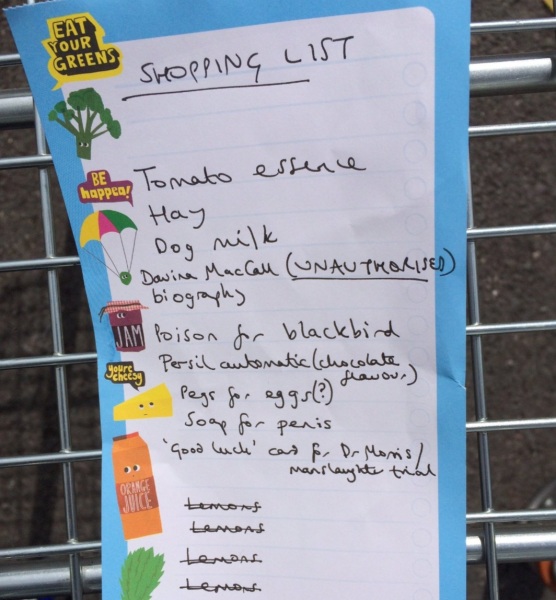 EAT
YOUR
GREENS
SHOPPING LIST
BE
happea!
Tomato essence
Hay
Dog milk
Davina MacCall (UNAUTHORISED)
biography
JAM
Poison for blackbird
you're
cheesy
Persil automatic (chocolate
flavour)
Pegs for eggs (?)
Soap for penis
'Good luck' card for Dr Morris/
manslaughter trial
ORANGE
JUICE
Lemons
Lemons
Lemons
Lemons